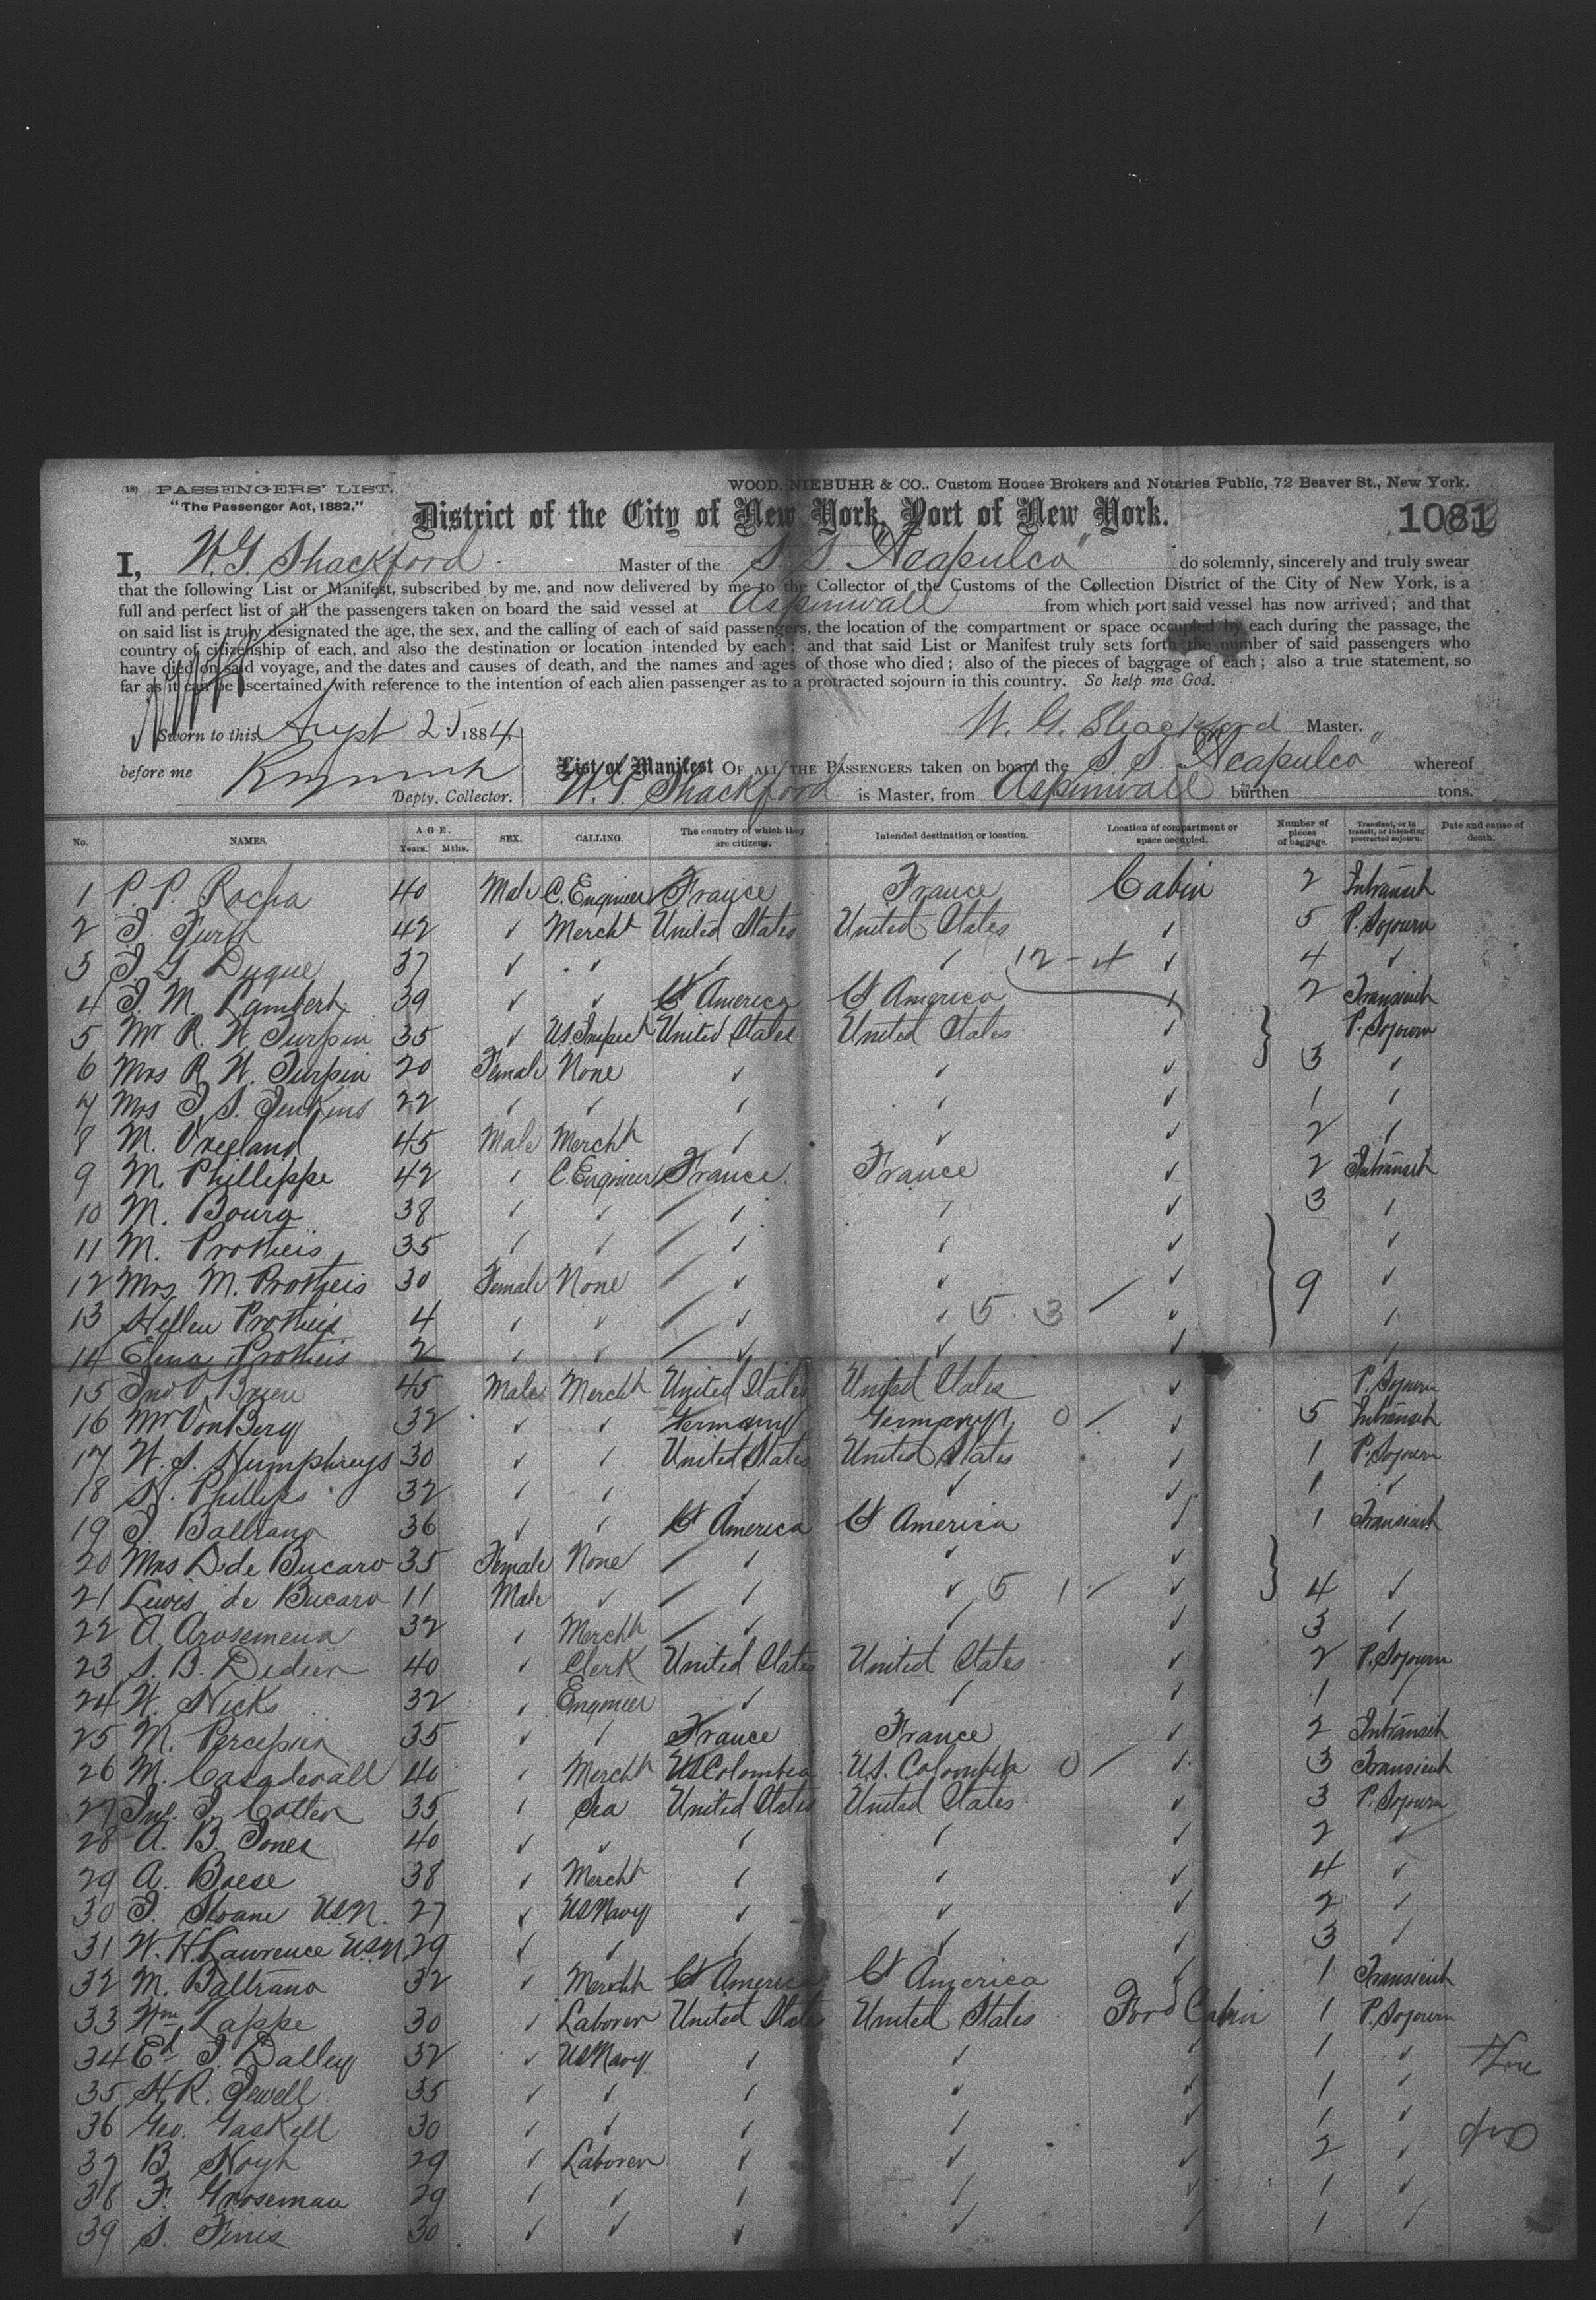 (18) PASSENGERS' LIST. WOOD, NIEBUHR & CO., Custom House Brokers and Notaries Public, 72 Beaver St., New York.
"The Passenger Act, 1882."
District of the City of New York, Port of New York. 1081
I, W. G. Shackford Master of the S. S. "Acapulco" do solemnly, sincerely and truly swear
that the following List or Manifest, subscribed by me, and now delivered by me to the Collector of the Customs of the Collection District of the City of New York, is a
full and perfect list of all the passengers taken on board the said vessel at Aspinwall from which port said vessel has now arrived; and that
on said list is truly designated the age, the sex, and the calling of each of said passengers, the location of the compartment or space occupied by each during the passage, the
country of citizenship of each, and also the destination or location intended by each; and that said List or Manifest truly sets forth the number of said passengers who
have died on said voyage, and the dates and causes of death, and the names and ages of those who died; also of the pieces of baggage of each; also a true statement, so
far as it can be ascertained, with reference to the intention of each alien passenger as to a protracted sojourn in this country. So help me God.
Sworn to this Augt 25 1884 W. G. Shackford Master.
before me List or Manifest OF ALL THE PASSENGERS taken on board the S. S. "Acapulco" whereof
Depty. Collector. W. G. Shackford is Master, from Aspinwall burthen tons.
No. NAMES. AGE. Years. Mths. SEX. CALLING. The country of which they are citizens. Intended destination or location. Location of compartment or space occupied. Number of pieces of baggage. Transient, or in transit, or intending protracted sojourn. Date and cause of death.
1 P. P. Rocha 40 Male C. Engineer France France Cabin 2 Intransit
2 42 ✓ Mercht United States United States ✓ 5 P. Sojourn
3 J. G. Duque 37 ✓ ✓ ✓ ✓ 12-4 ✓ 4 ✓
4 J. M. Lambert 39 ✓ ✓ Cl America Cl America ✓ 2 Transient
5 Mr R. W. Turpin 35 ✓ US. United States United States ✓ P. Sojourn
6 Mrs R. W. Turpin 20 Female None ✓ ✓ ✓ 3 ✓
7 Mrs J. S. Jenkins 22 ✓ ✓ ✓ ✓ ✓ 1 ✓
8 M. Vreeland 45 Male Mercht ✓ ✓ ✓ 2 ✓
9 M. Phillippe 42 ✓ C Engineer France France ✓ 2 Intransit
10 M. Bourg 38 ✓ ✓ ✓ ✓ ✓ 3 ✓
11 M. Protheis 35 ✓ ✓ ✓ ✓ ✓ ✓
12 Mrs M. Protheis 30 Female None ✓ ✓ ✓ 9 ✓
13 Hellen Protheis 4 ✓ ✓ ✓ ✓ 5 3 ✓ ✓
14 Elena Protheis 2 ✓ ✓ ✓ ✓ ✓ ✓
15 Jno O'Brien 45 Male Mercht United States United States ✓ P. Sojourn
16 Mr Von Berg 32 ✓ ✓ Germany Germany 0 ✓ 5 Intransit
17 W. S. Humphreys 30 ✓ ✓ United States United States ✓ 1 P. Sojourn
18 Phillips 32 ✓ ✓ ✓ ✓ ✓ 1 ✓
19 J. Baltrano 36 ✓ ✓ Cl America Cl America ✓ 1 Transient
20 Mrs D. de Bucaro 35 Female None ✓ ✓ ✓
21 Lewis de Bucaro 11 Male ✓ ✓ ✓ 5 1 ✓ 4 ✓
22 A. Arosemena 32 ✓ Mercht ✓ ✓ ✓ 3 ✓
23 S. B. Didier 40 ✓ Clerk United States United States ✓ 2 P. Sojourn
24 W. Hicks 32 ✓ Engineer ✓ ✓ ✓ 1 ✓
25 M. 35 ✓ ✓ France France ✓ 2 Intransit
26 M. Casadevall 40 ✓ Mercht US Colombia U.S. Colombia 0 ✓ 3 Transient
27 J. Cotter 35 ✓ Sea United States United States ✓ 3 P. Sojourn
28 A. B. Jones 40 ✓ ✓ ✓ ✓ ✓ 2 ✓
29 A. Boese 38 ✓ Mercht ✓ ✓ ✓ 4 ✓
30 J. Sloane USN. 27 ✓ US Navy ✓ ✓ ✓ 2 ✓
31 W. H. Lawrence USN. 29 ✓ ✓ ✓ ✓ ✓ 3 ✓
32 M. Baltrano 32 ✓ Mercht Cl America Cl America ✓ 1 Transient
33 Wm Zappe 30 ✓ Laborer United States United States Ford Cabin 1 P. Sojourn
34 Ed J. Dalley 32 ✓ US Navy ✓ ✓ ✓ 1 ✓
35 H. R. Jewell 35 ✓ ✓ ✓ ✓ ✓ 1 ✓
36 Geo. Gaskell 30 ✓ ✓ ✓ ✓ ✓ 1 ✓
37 B. Hoyt 29 ✓ Laborer ✓ ✓ ✓ 2 ✓
38 F. Groseman 29 ✓ ✓ ✓ ✓ ✓ 1 ✓
39 S. Finis 30 ✓ ✓ ✓ ✓ ✓ 1 ✓